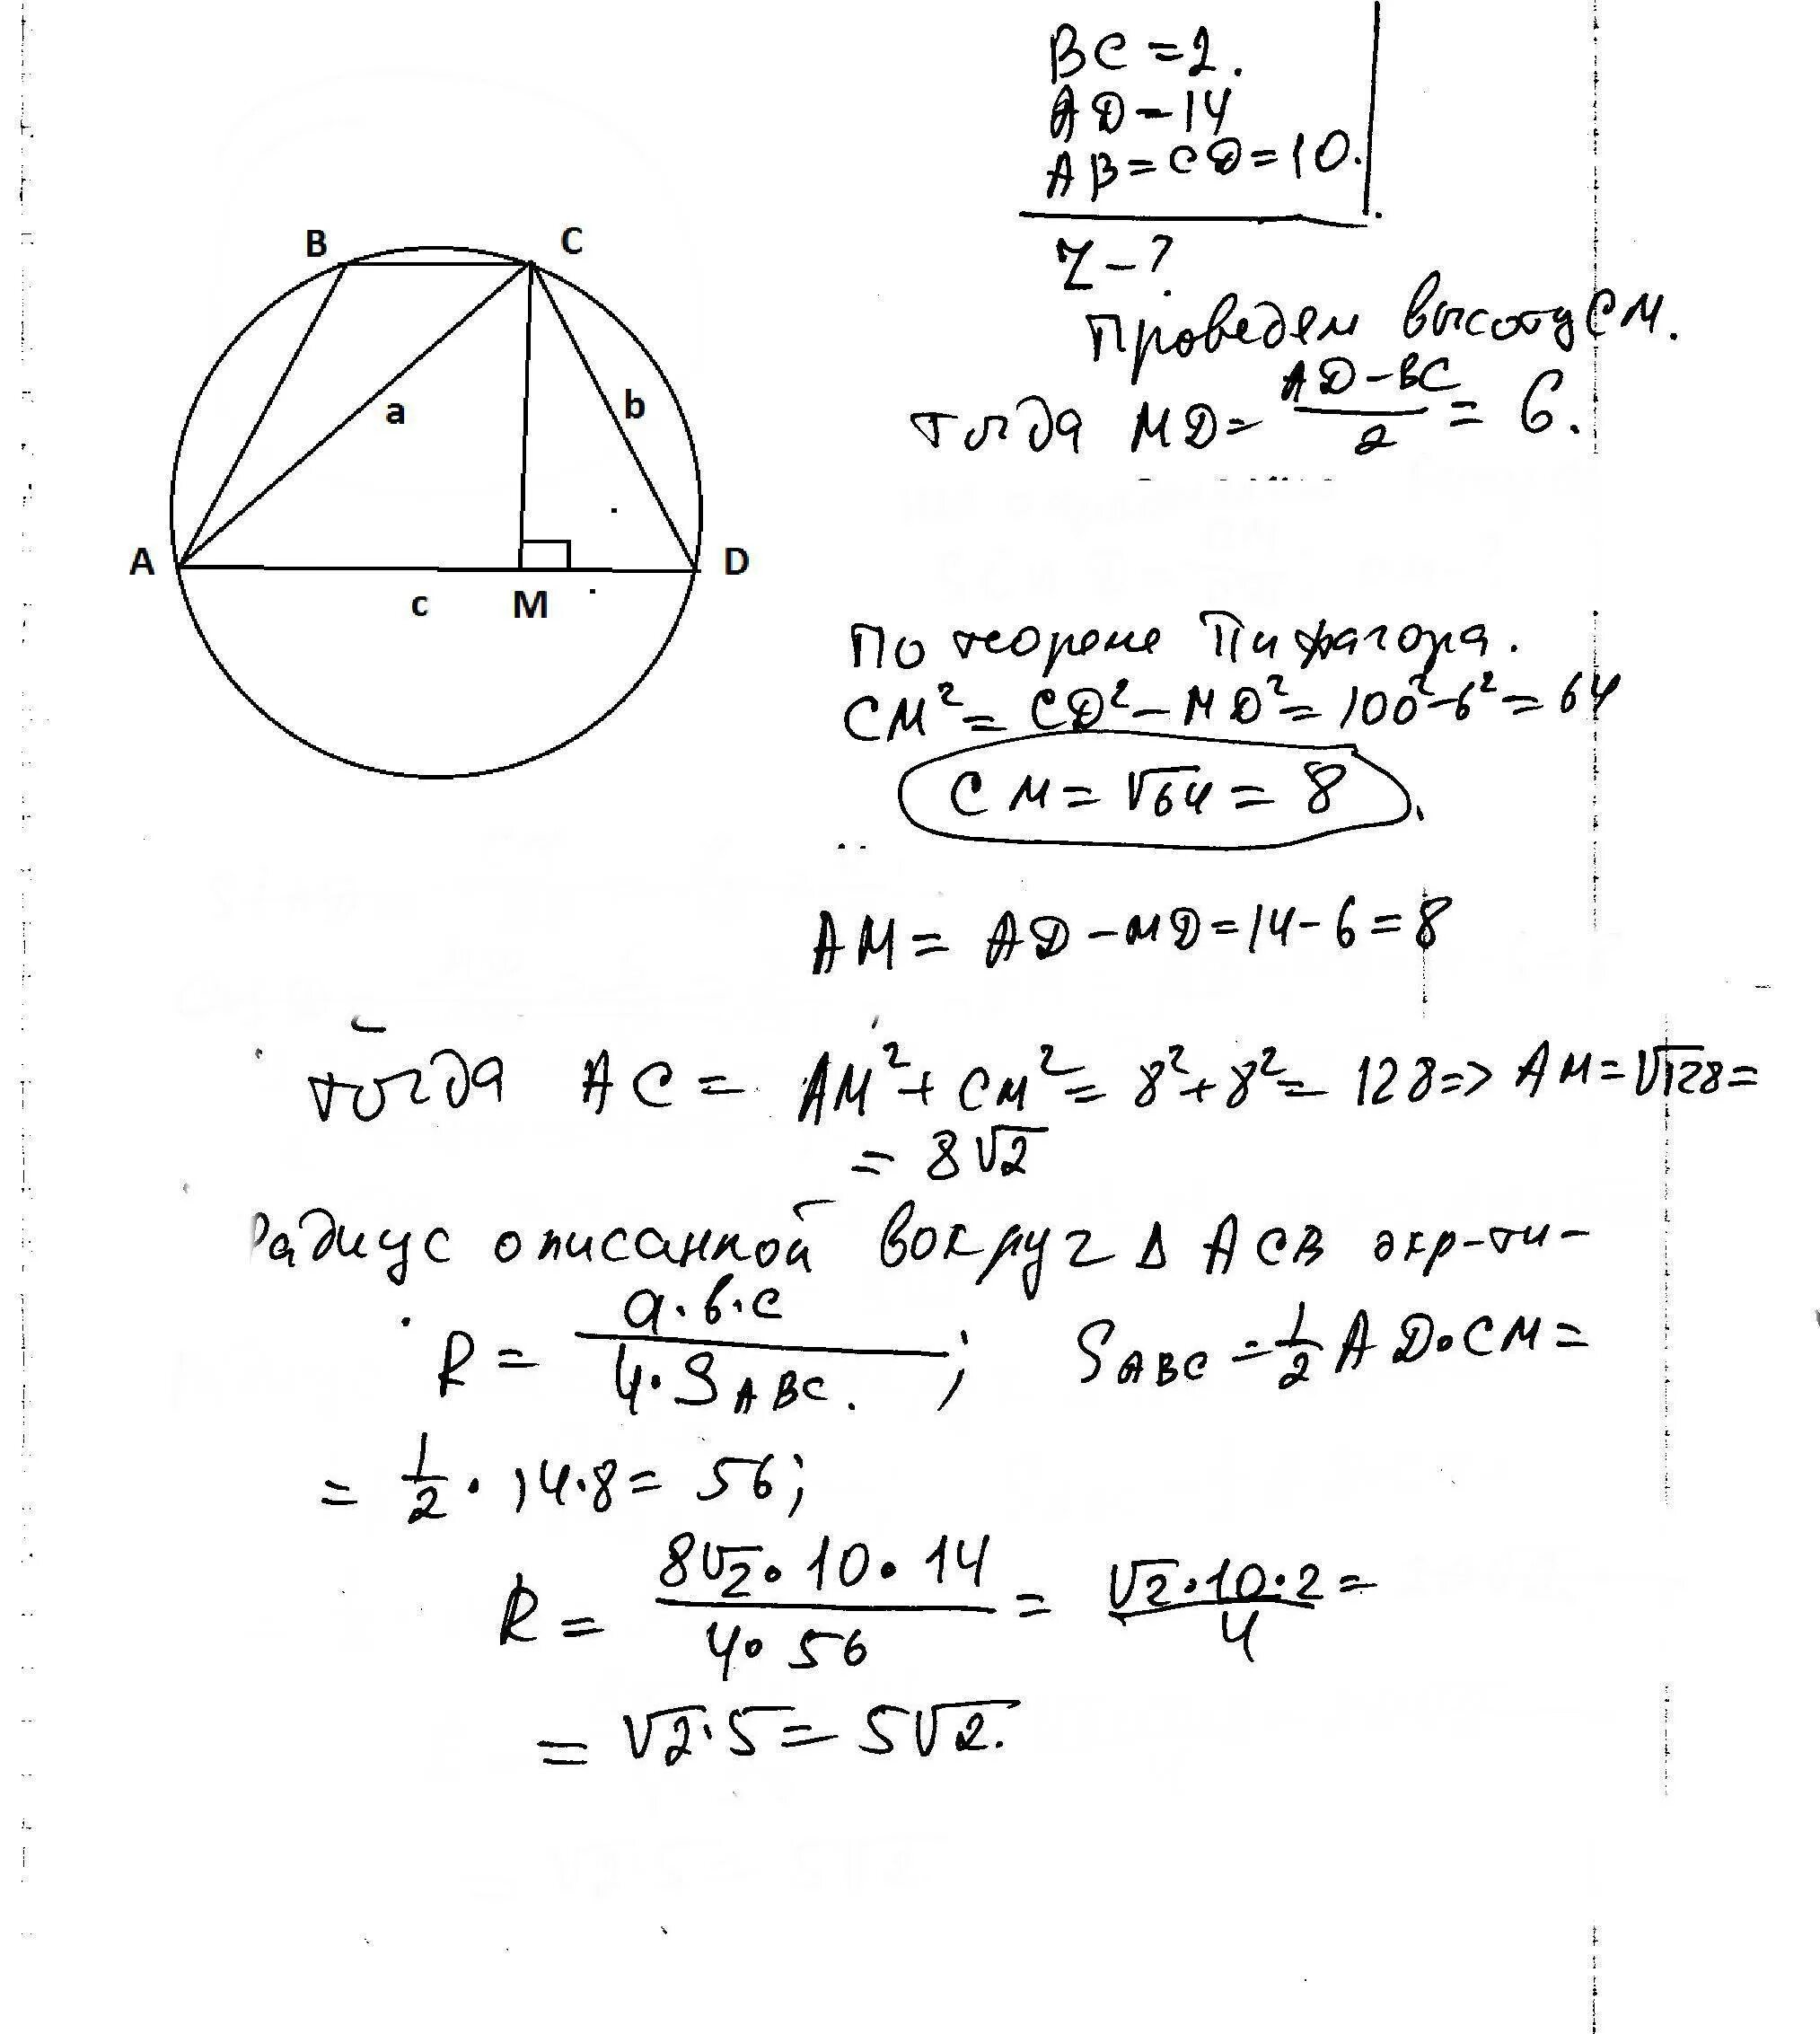 BC = 2.
AD = 14
AB = CD = 10.
r - ?
B
C
a
b
A
D
c
M
Проведем высоту CM.
тогда MD = (AD - BC)/2 = 6.
По теореме Пифагора.
CM² = CD² - MD² = 100² - 6² = 64
CM = √64 = 8.
AM = AD - MD = 14 - 6 = 8
тогда AC = AM² + CM² = 8² + 8² = 128 => AM = √128 =
= 8√2
Радиус описанной вокруг Δ ACB окр-ти -
R = a·b·c / 4·S ABC. ; S ABC = 1/2 AD·CM =
= 1/2 · 14·8 = 56;
R = 8√2·10·14 / 4·56 = √2·10·2 / 4 =
= √2·5 = 5√2.